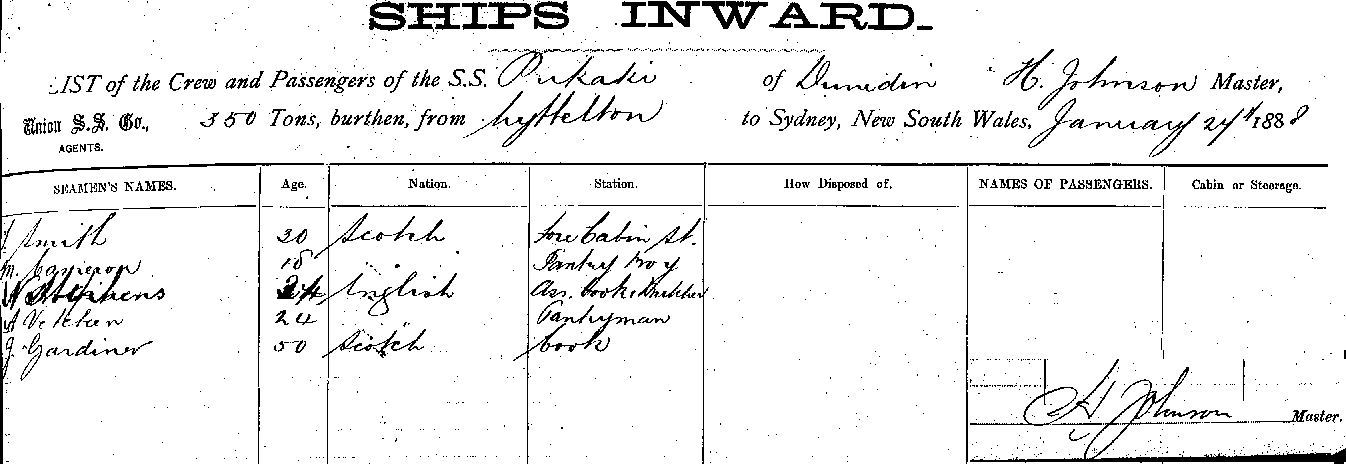 SHIPS INWARD.
LIST of the Crew and Passengers of the S.S. Pukaki of Dunedin H. Johnson Master,
Union S.S. Co., 350 Tons, burthen, from Lyttelton to Sydney, New South Wales, January 24th 1888
AGENTS.
SEAMEN'S NAMES. Age. Nation. Station. How Disposed of. NAMES OF PASSENGERS. Cabin or Steerage.
Smith 30 Scotch Fore Cabin St.
M. Cameron 18 Pantry Boy
Stephens 24 English Ass. Cook & Butcher
A 24 Pantryman
J Gardiner 50 Scotch Cook
H Johnson Master.